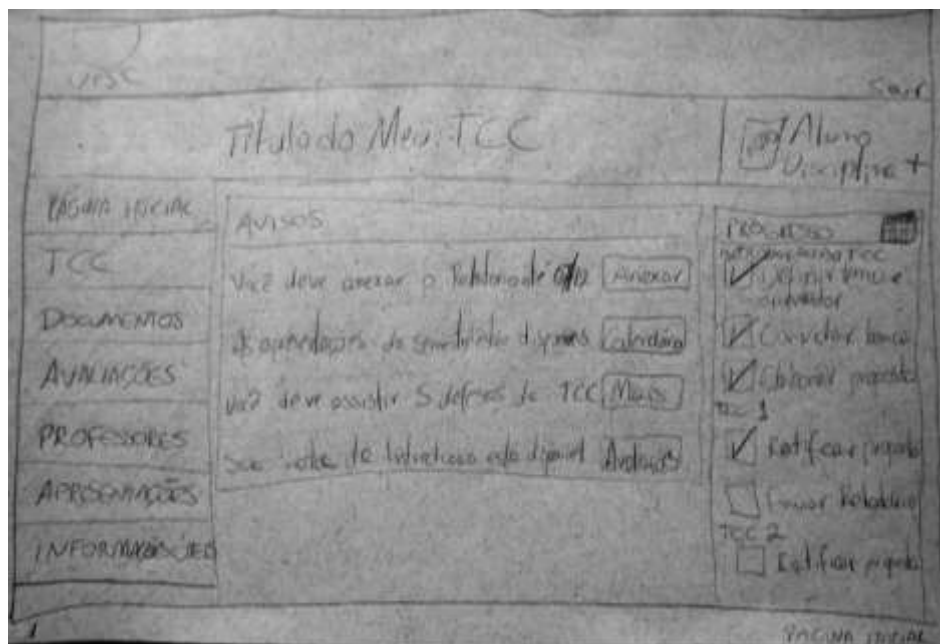 UFSC
Sair
Título do Meu TCC
Aluno
Disciplina +
PÁGINA INICIAL
TCC
DOCUMENTOS
AVALIAÇÕES
PROFESSORES
APRESENTAÇÕES
INFORMAÇÕES
AVISOS
Você deve anexar o Relatório até
Anexar
As apresentações do
Calendário
Você deve assistir 5 defesas de TCC
Mais
Sua nota de Introdução está disponível
PROGRESSO
Definir tema e
orientador
Convidar banca
Elaborar proposta
TCC 1
Ratificar proposta
Enviar Relatório
TCC 2
Ratificar proposta
1
PÁGINA INICIAL